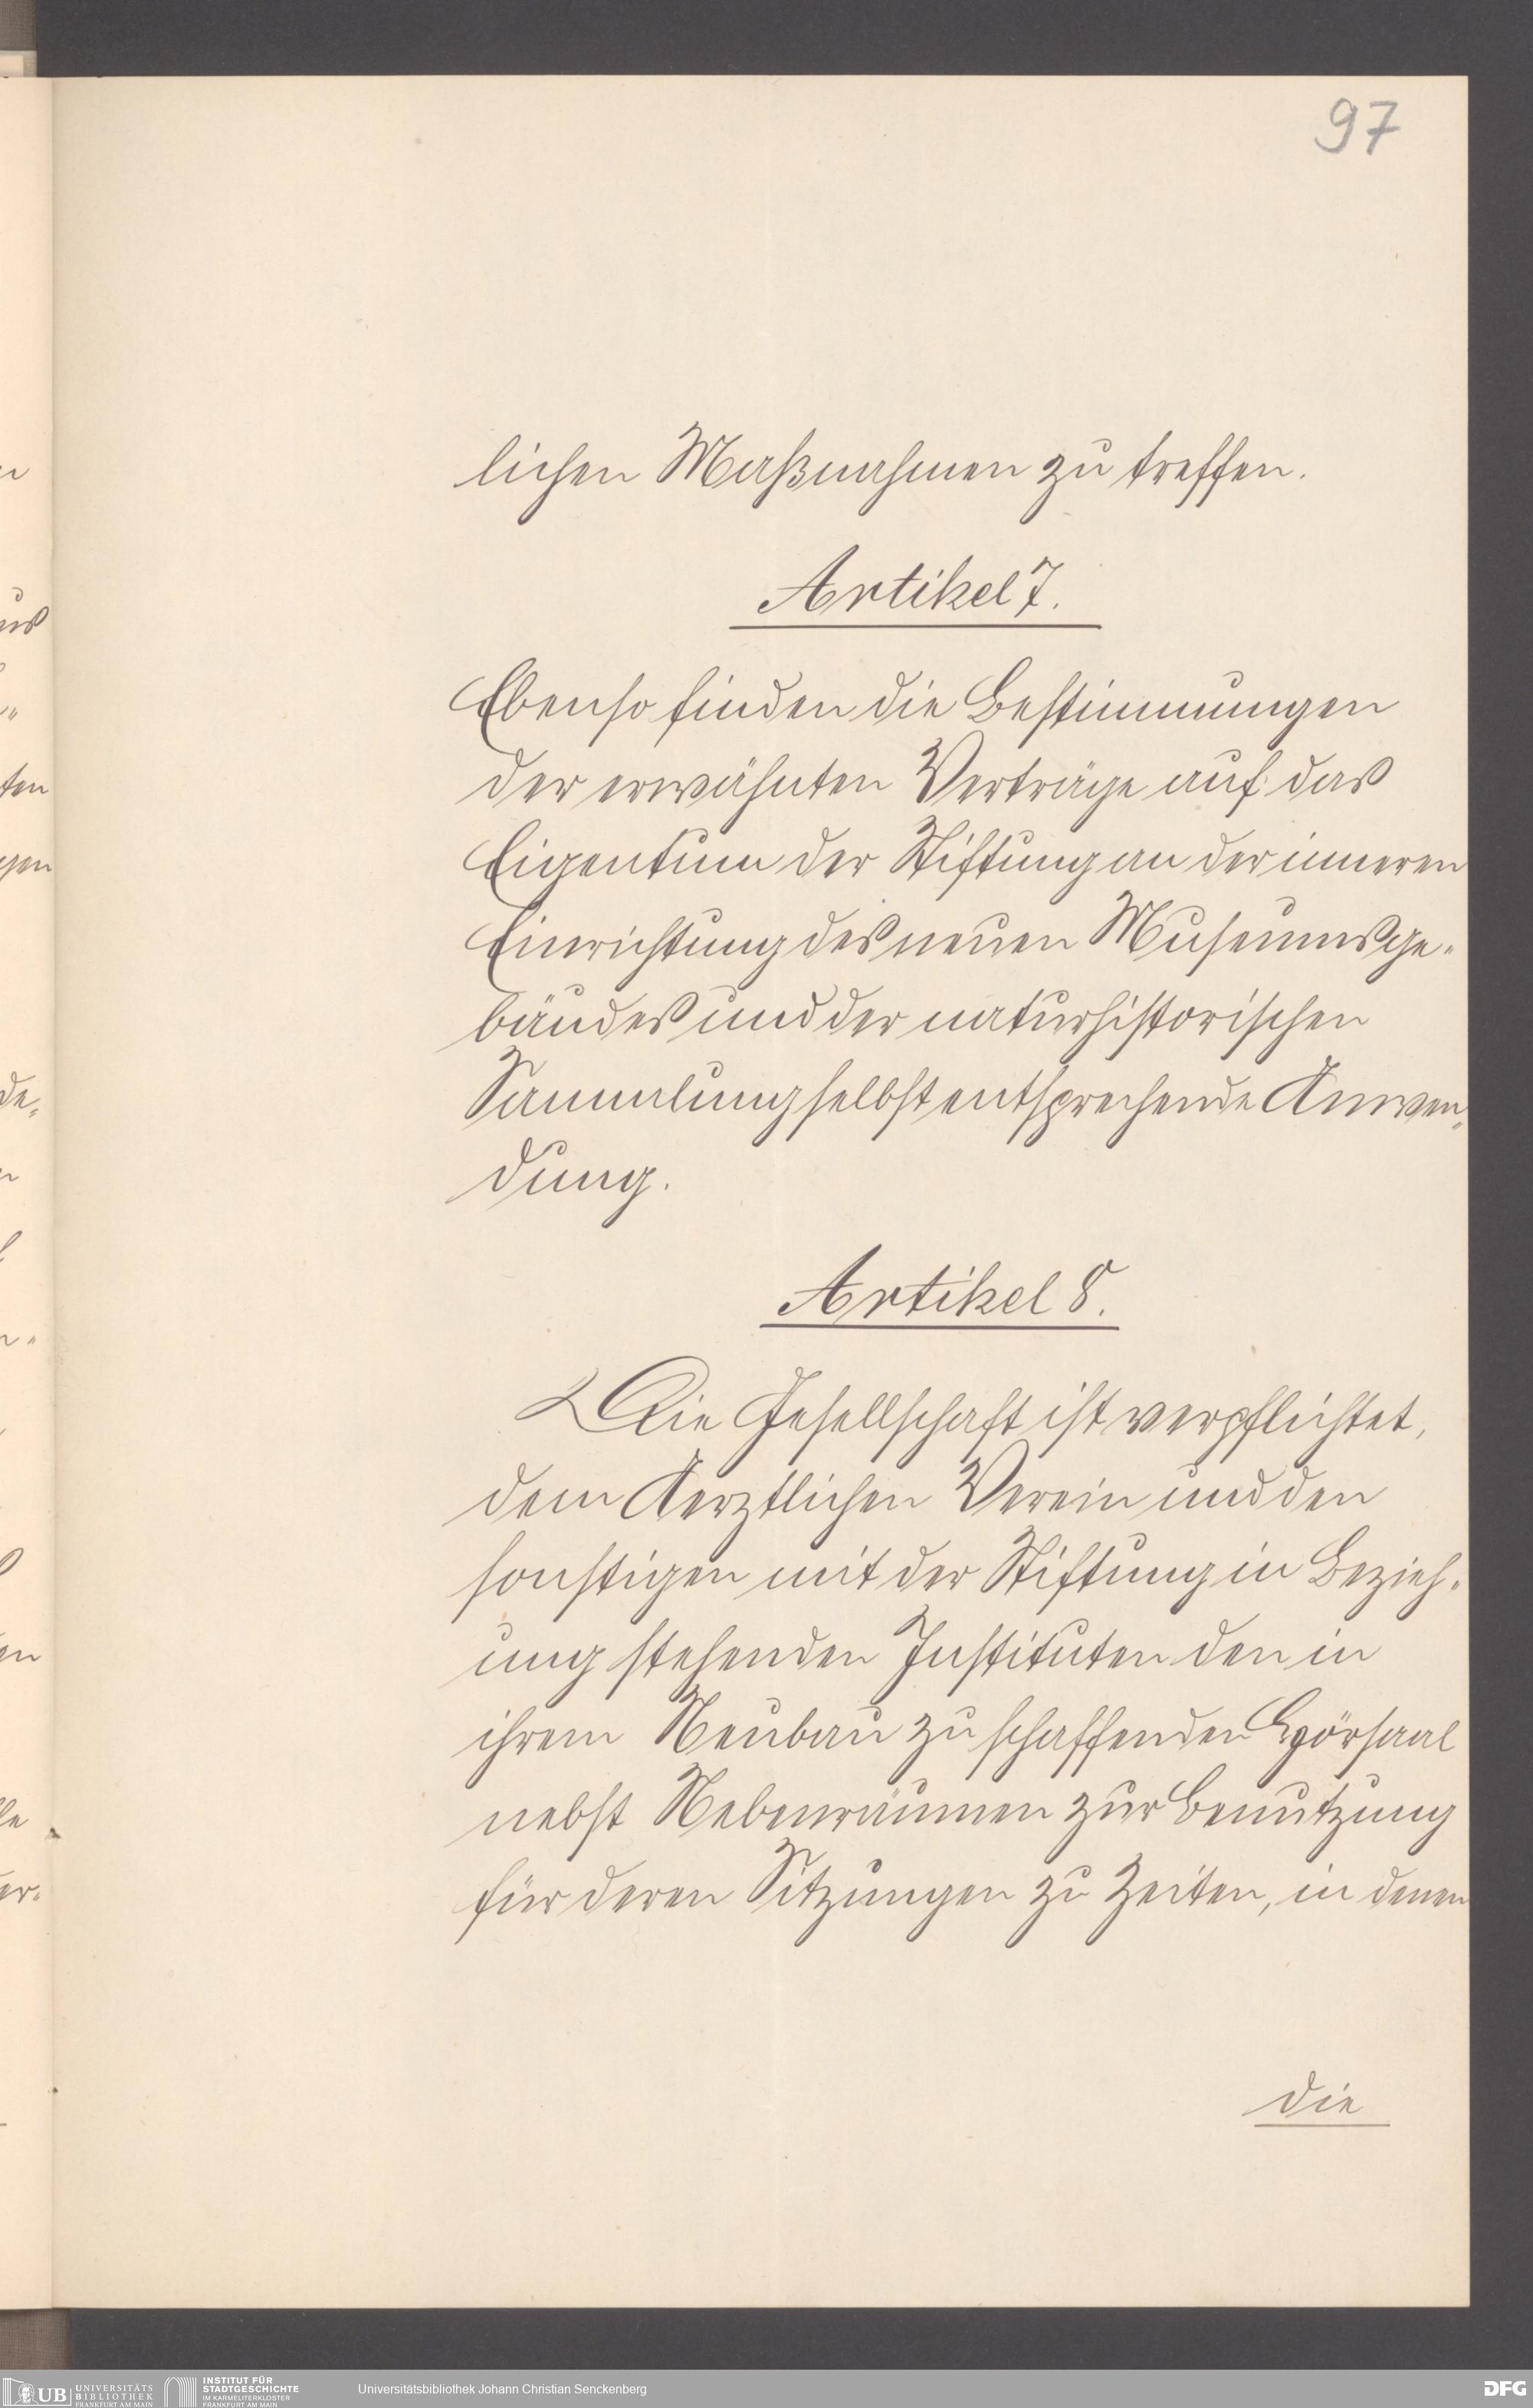 97
lichen Maßnahmen zu treffen.
Artikel 7.
Ebenso finden die Bestimmungen
der erwähnten Verträge auf das
Eigentum der Stiftung an der inneren
Einrichtung des neuen Museumsge-
bäudes und der naturhistorischen
Sammlung selbst entsprechende Anwen-
dung.
Artikel 8.
Die Gesellschaft ist verpflichtet,
dem Aerztlichen Verein und den
sonstigen mit der Stiftung in Bezieh-
ung stehenden Instituten den in
ihrem Neubau zu schaffenden Hörsaal
nebst Nebenräumen zur Benutzung
für deren Sitzungen zu Zeiten, in denen
die
UB UNIVERSITÄTS BIBLIOTHEK FRANKFURT AM MAIN
INSTITUT FÜR STADTGESCHICHTE IM KARMELITERKLOSTER FRANKFURT AM MAIN
Universitätsbibliothek Johann Christian Senckenberg
DFG